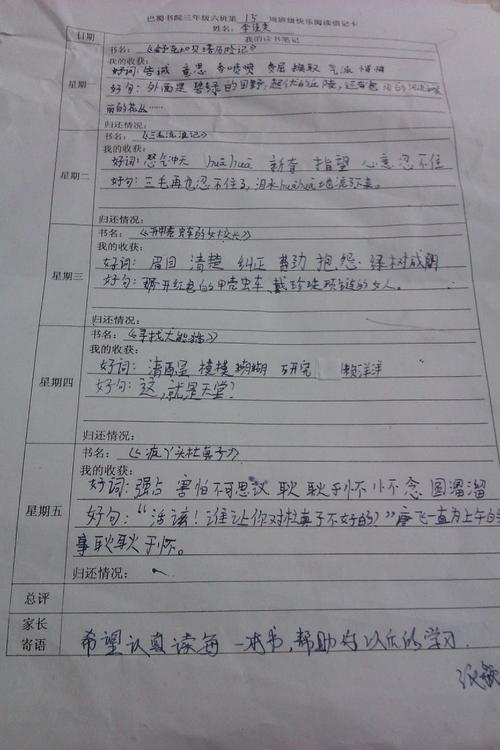 巴蜀书院三年级六班第 15 周班级快乐阅读借记卡
姓名：李佳芝
日期 我的读书笔记
星期一
书名：《舒克和贝塔历险记》
我的收获：
好词：告诫 意思 费尽 气派
好句：外面是碧绿的田野，起伏的丘陵，还有
丽的花丛……
归还情况：
星期二
书名：《三毛流浪记》
我的收获：
好词：怒气冲天 huāhuā 新奇 指望 心意 忍不住
好句：三毛再也忍不住了，泪水huāhuā地流了下来。
归还情况：
星期三
书名：《开甲壳虫车的女校长》
我的收获：
好词：眉目 清楚 纠正 带劲 抱怨 绿树成阴
好句：那开红色的甲壳虫车、戴珍珠项链的女人。
归还情况：
星期四
书名：《寻找大熊猫》
我的收获：
好词：清醒 模模糊糊 研究 懒洋洋
好句：这，就是天堂？
归还情况：
星期五
书名：《疯丫头杜真子》
我的收获：
好词：强占 害怕 不可思议 耿耿于怀 怀念 圆溜溜
好句：“活该！谁让你对杜真子不好的）”唐飞一直为上午的
事耿耿于怀。
归还情况：
总评
家长
寄语
希望认真读每一本书，帮助与以后的学习.